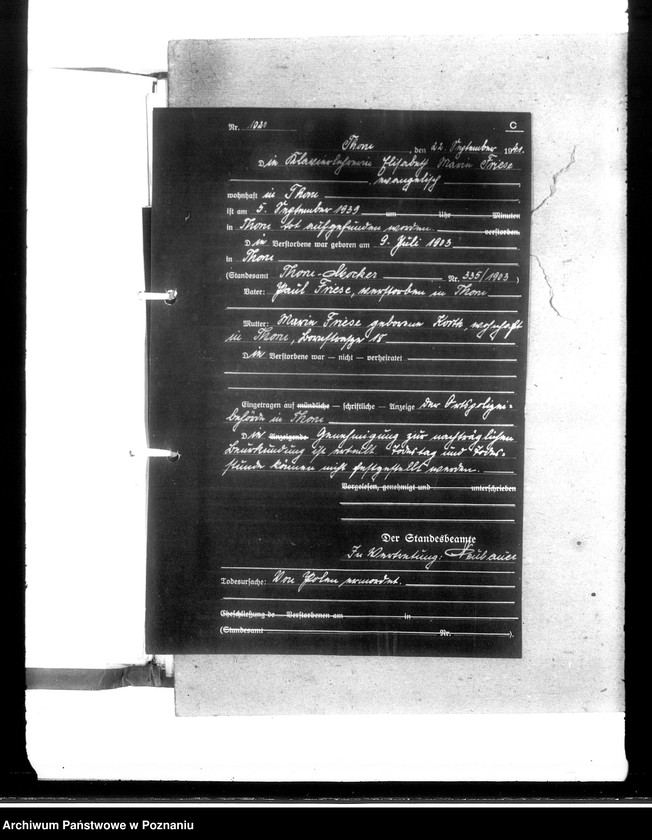 C
Nr. 1020
Thorn, den 22. September 1941.
Die Klavierlehrerin Elisabeth Marie Friese
, evangelisch
wohnhaft in Thorn
ist am 5. September 1939 um Uhr Minuten
in Thorn tot aufgefunden worden. verstorben.
Die Verstorbene war geboren am 9. Juli 1903
in Thorn
(Standesamt Thorn-Mocker Nr. 335/1903)
Vater: Paul Friese, verstorben in Thorn
Mutter: Marie Friese geborene Korth, wohnhaft
in Thorn, Bornstrasse 18
Die Verstorbene war — nicht — verheiratet
Eingetragen auf mündliche — schriftliche — Anzeige der Ortspolizei-
behörde in Thorn
Die Anzeigende Genehmigung zur nachträglichen
Beurkundung ist erteilt. Todestag und Todes-
stunde können nicht festgestellt werden.
Vorgelesen, genehmigt und unterschrieben
Der Standesbeamte
In Vertretung: Neubauer
Todesursache: Von Polen ermordet.
Eheschließung de Verstorbenen am in
(Standesamt Nr. ).
Archiwum Państwowe w Poznaniu